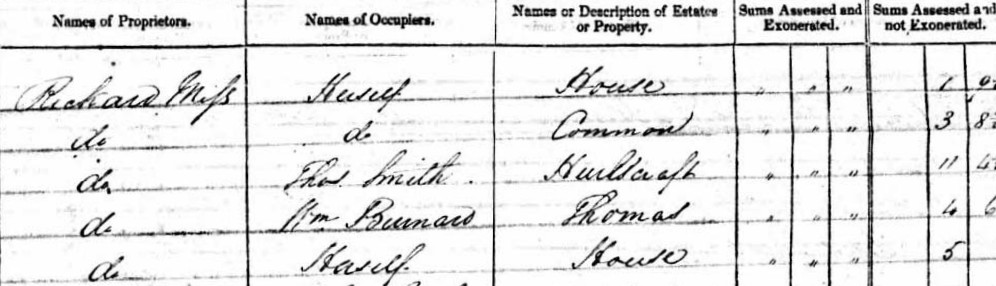 Names of Proprietors. Names of Occupiers. Names or Description of Estates or Property. Sums Assessed and Exonerated. Sums Assessed and not Exonerated.
Rickard Miss Herself House " " " 1 9
do do Common " " " 3 8
do Thos Smith. " " " 11
do Wm Burnard Thomas " " " 4 6
do Herself House " " " 5